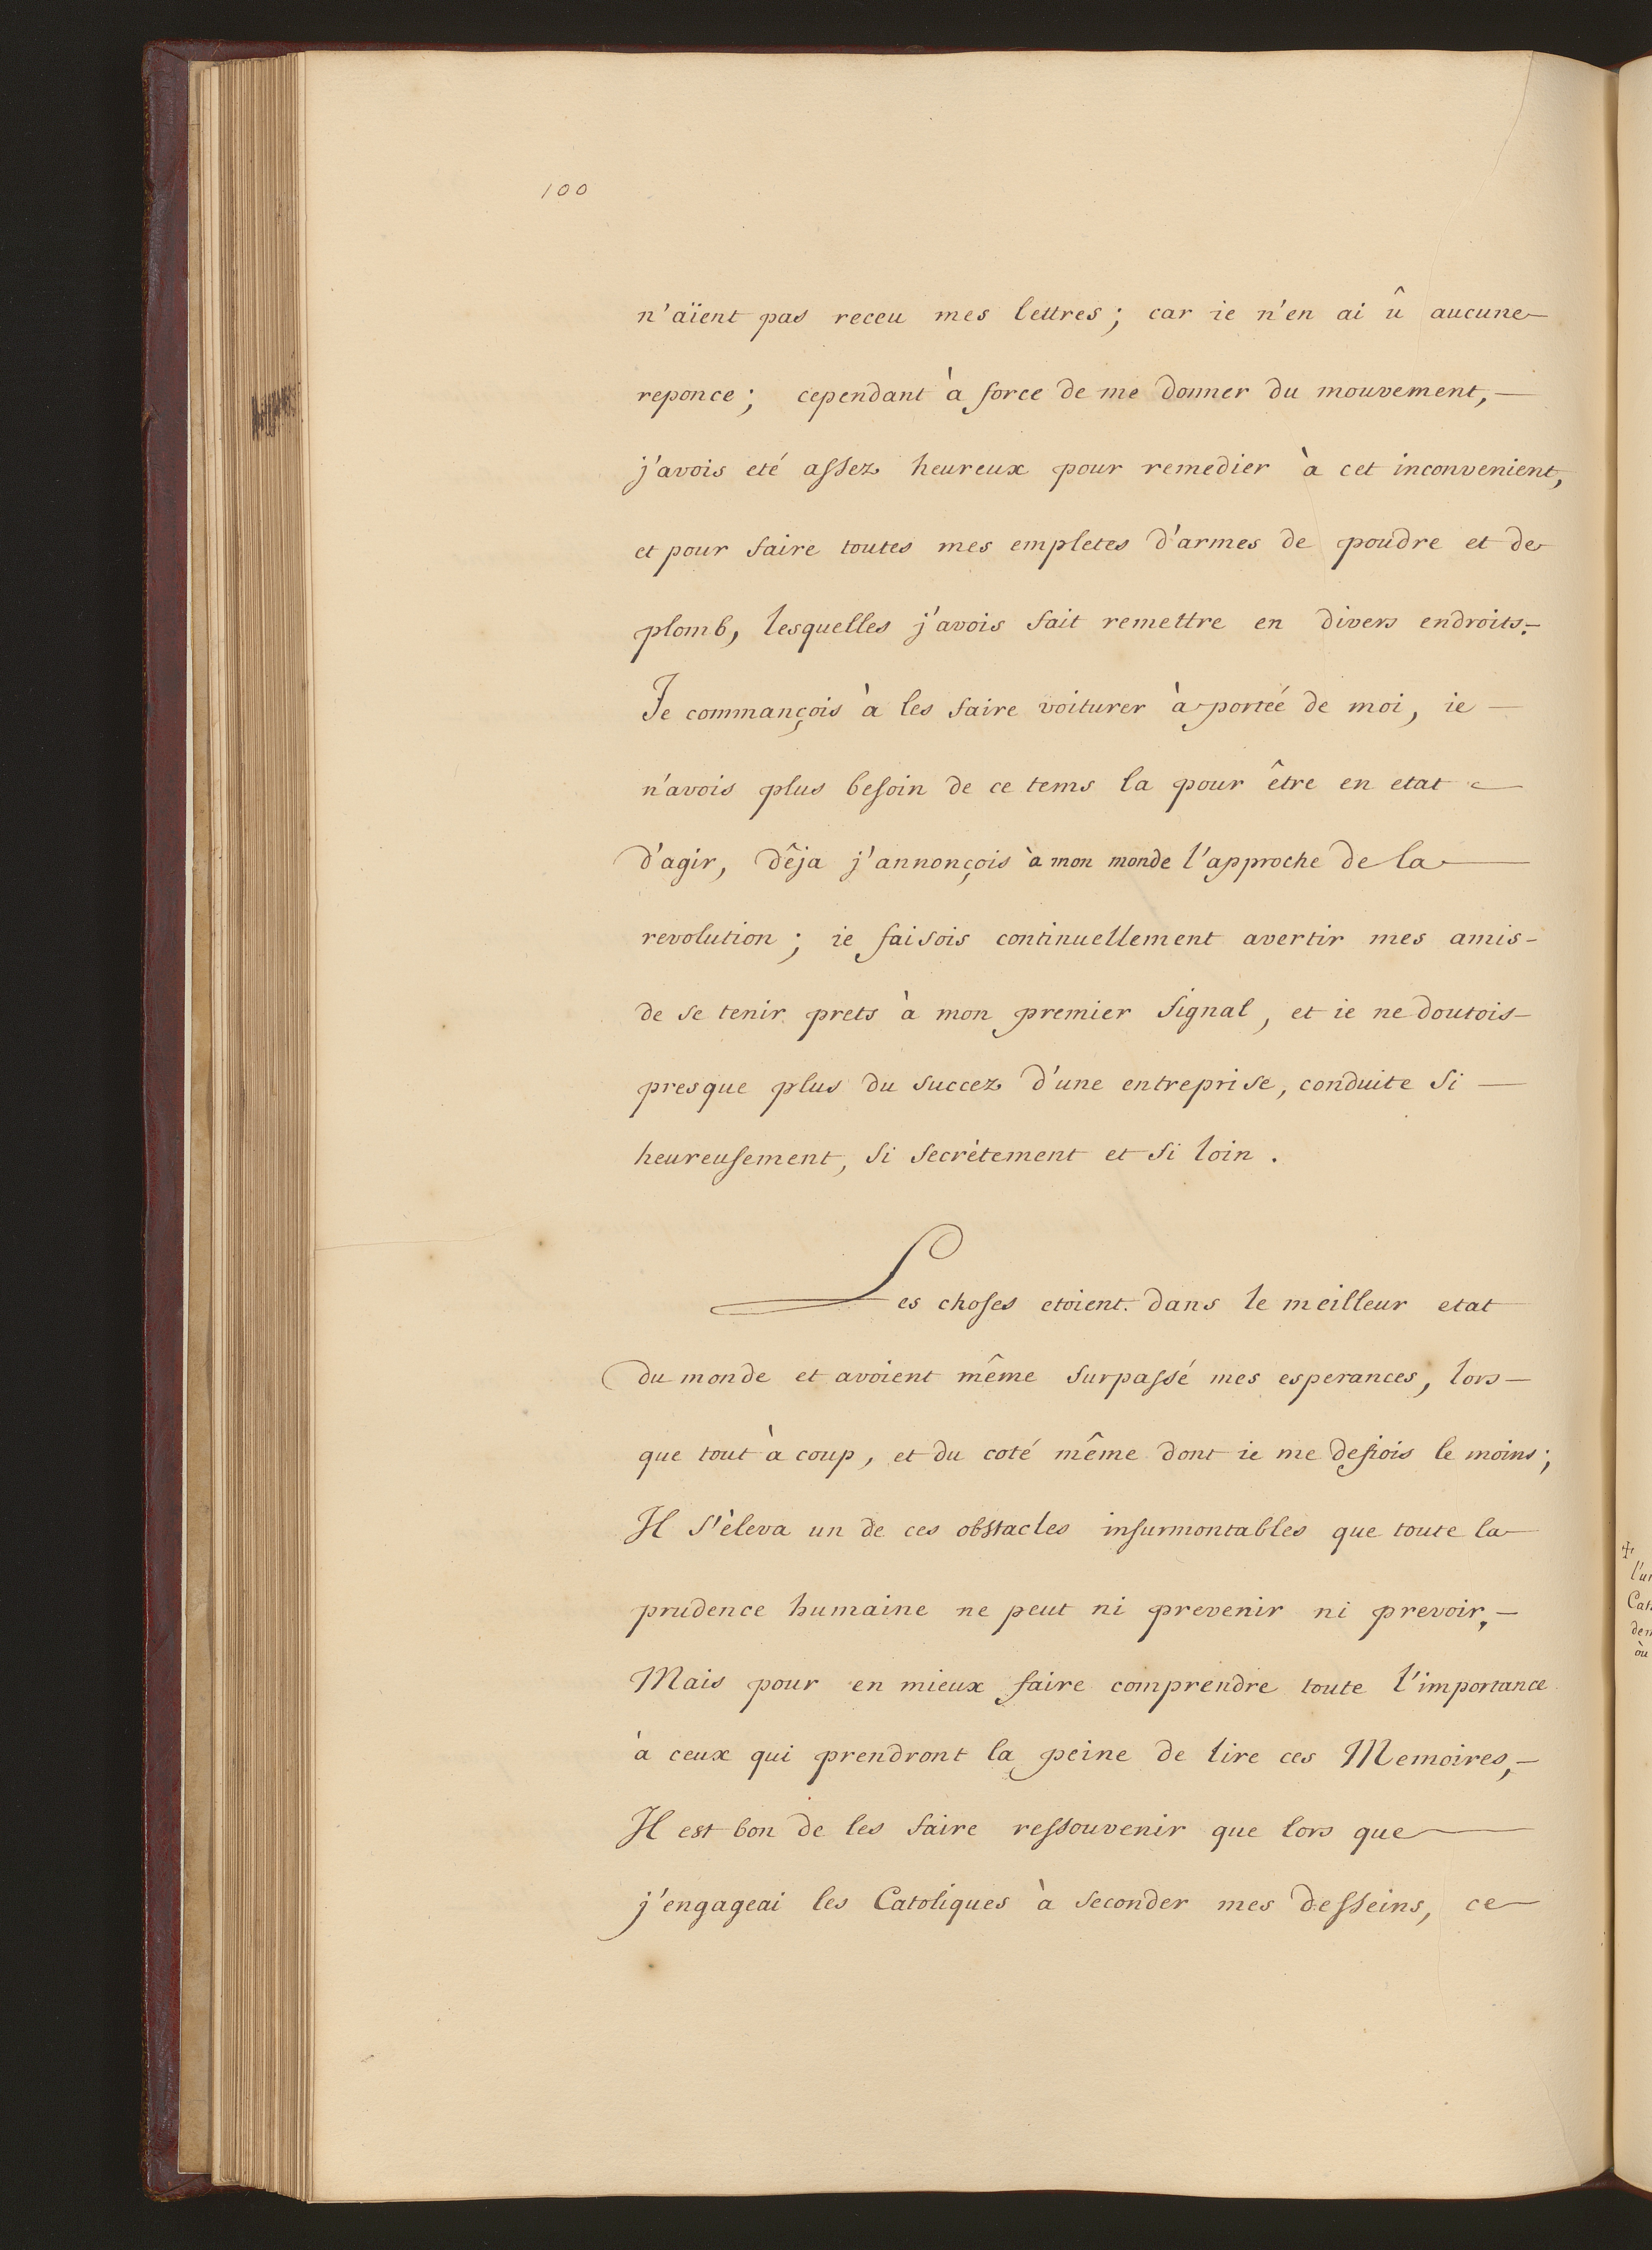 100
n'aïent pas receu mes lettres; car ie n'en ai û aucune
reponce; cependant à force de me donner du mouvement,
j'avois eté assez heureux pour remedier à cet inconvenient,
et pour faire toutes mes empletes d'armes de poudre et de
plomb, lesquelles j'avois fait remettre en divers endroits.
Je commançois à les faire voiturer à porteé de moi, ie
n'avois plus besoin de ce tems la pour être en etat
d'agir, dêja j'annonçois à mon monde l'approche de la
revolution; ie faisois continuellement avertir mes amis
de se tenir prets à mon premier signal, et ie ne doutois
presque plus du succez d'une entreprise, conduite si
heureusement, si secrètement et si loin.
Les choses etoient dans le meilleur etat
du monde et avoient même surpassé mes esperances, lors
que tout à coup, et du coté même dont ie me defiois le moins;
Il s'èleva un de ces obstacles insurmontables que toute la
prudence humaine ne peut ni prevenir ni prevoir,
Mais pour en mieux faire comprendre toute l'importance
à ceux qui prendront la peine de lire ces Memoires,
Il est bon de les faire ressouvenir que lors que
j'engageai les Catoliques à seconder mes desseins, ce